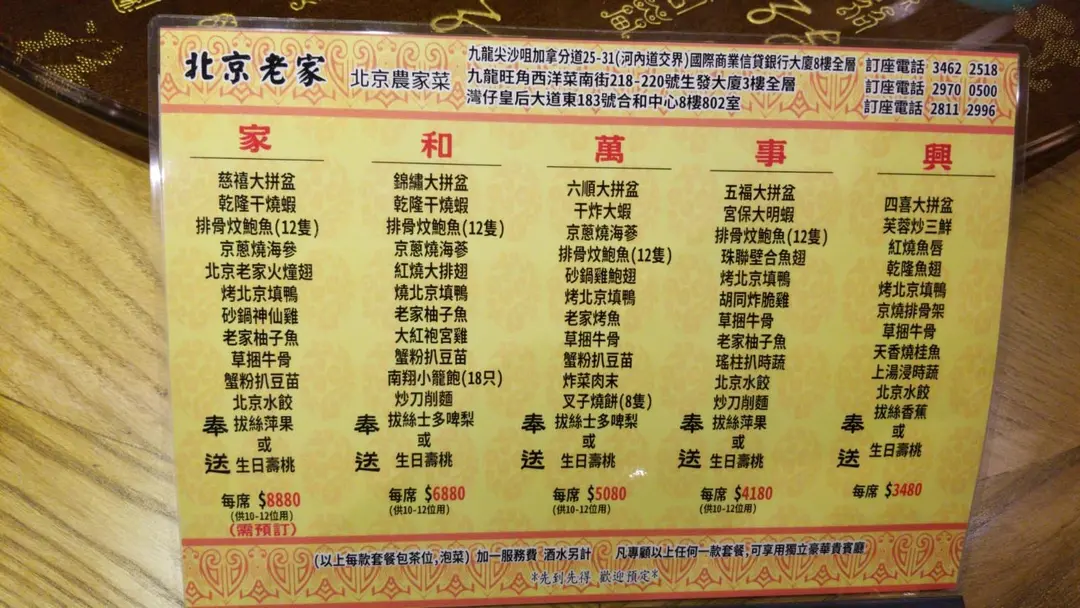 北京老家
北京農家菜
九龍尖沙咀加拿分道25-31(河內道交界)國際商業信貸銀行大廈8樓全層 訂座電話 3462 2518
九龍旺角西洋菜南街218-220號生發大廈3樓全層 訂座電話 2970 0500
灣仔皇后大道東183號合和中心8樓802室 訂座電話 2811 2996
家
慈禧大拼盆
乾隆干燒蝦
排骨炆鮑魚(12隻)
京蔥燒海參
北京老家火燑翅
烤北京填鴨
砂鍋神仙雞
老家柚子魚
草捆牛骨
蟹粉扒豆苗
北京水餃
奉送
拔絲萍果
或
生日壽桃
每席 $8880
(供10-12位用)
(需預訂)
和
錦繡大拼盆
乾隆干燒蝦
排骨炆鮑魚(12隻)
京蔥燒海蔘
紅燒大排翅
燒北京填鴨
老家柚子魚
大紅袍宮雞
蟹粉扒豆苗
南翔小籠飽(18只)
炒刀削麵
奉送
拔絲士多啤梨
或
生日壽桃
每席 $6880
(供10-12位用)
萬
六順大拼盆
干炸大蝦
京蔥燒海蔘
排骨炆鮑魚(12隻)
砂鍋雞鮑翅
烤北京填鴨
老家烤魚
草捆牛骨
蟹粉扒豆苗
炸菜肉末
叉子燒餅(8隻)
奉送
拔絲士多啤梨
或
生日壽桃
每席 $5080
(供10-12位用)
事
五福大拼盆
宮保大明蝦
排骨炆鮑魚(12隻)
珠聯壁合魚翅
烤北京填鴨
胡同炸脆雞
草捆牛骨
老家柚子魚
瑤柱扒時蔬
北京水餃
炒刀削麵
奉送
拔絲萍果
或
生日壽桃
每席 $4180
(供10-12位用)
興
四喜大拼盆
芙蓉炒三鮮
紅燒魚唇
乾隆魚翅
烤北京填鴨
京燒排骨架
草捆牛骨
天香燒桂魚
上湯浸時蔬
北京水餃
奉送
拔絲香蕉
或
生日壽桃
每席 $3480
(以上每款套餐包茶位,泡菜) 加一服務費 酒水另計 凡專顧以上任何一款套餐,可享用獨立豪華貴賓廳
*先到先得 歡迎預定*